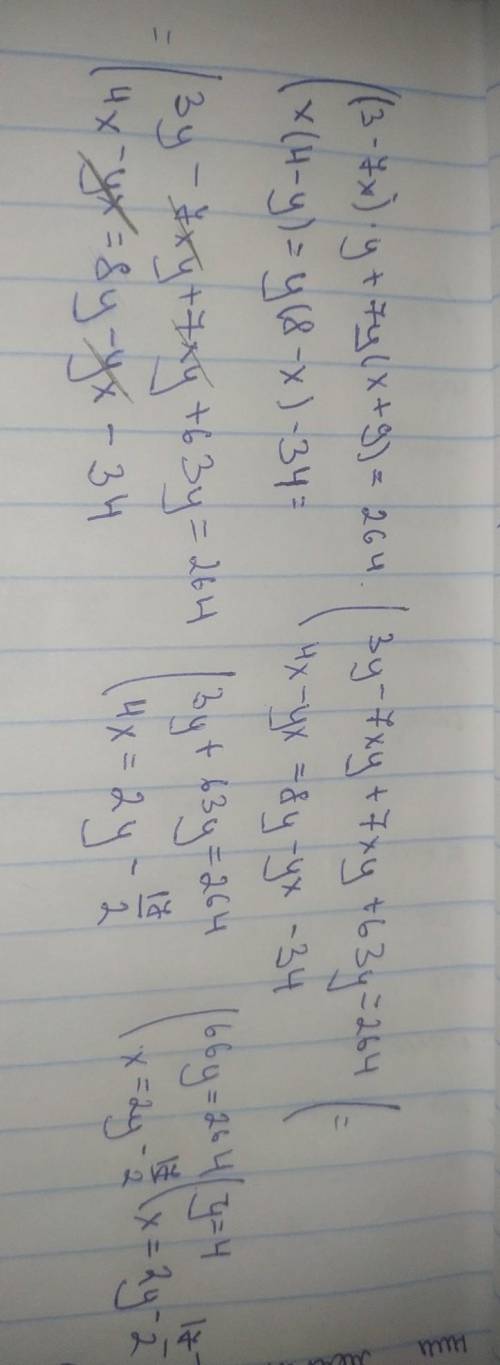 (3-7x)·y+7y(x+9)=264
x(4-y)=y(8-x)-34=
3y-7xy+7xy+63y=264
4x-yx=8y-yx-34
=
=
3y-7xy+7xy+63y=264
4x-yx=8y-yx-34
3y+63y=264
4x=2y-17/2
66y=264
x=2y-17/2
y=4
x=2y-17/2